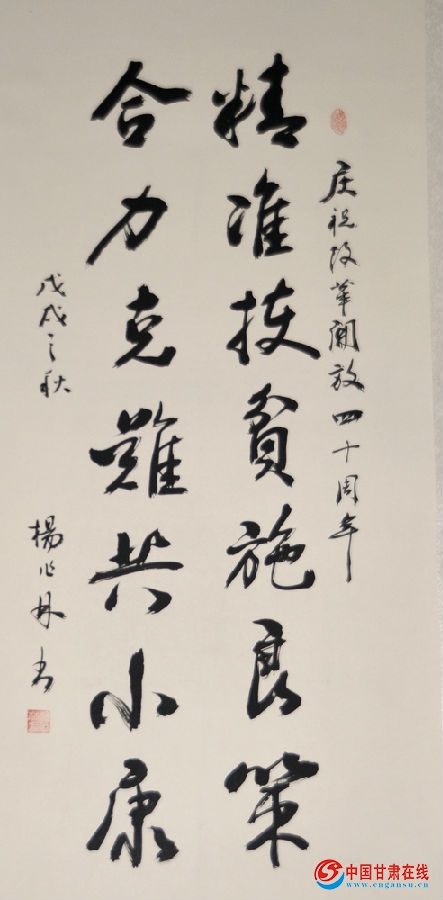 庆祝改革開放四十周年
精准扶貧施良策
合力克難共小康
戊戌之秋
楊林书
中国甘肃在线
www.cngansu.cn